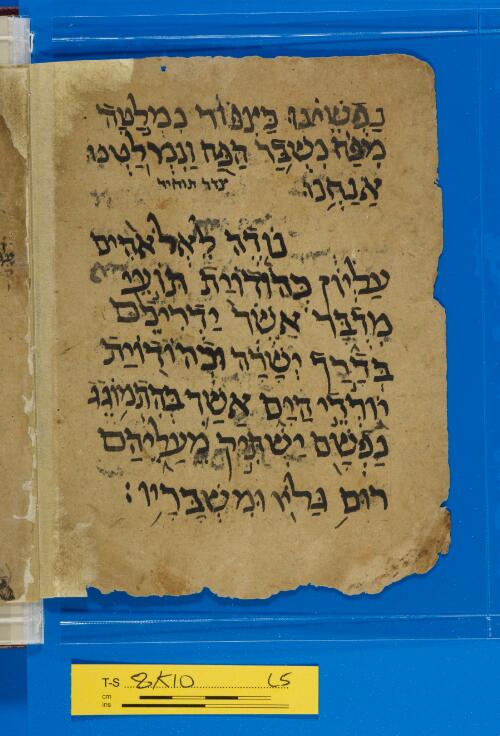 נפשינו כציפור נמלטה
מפח נשבר הפח ונמלטינו
אנחנו
נודה לאל אלהים
עליון כהודוית תועי
מדבר אשר ידריכם
בדרך ישרה וכהודוית
יורדי הים אשר בהתמוגג
נפשם ישתיק מעליהם
רום גליו ומשבריו :
T-S 8K10 L5
cm
ins